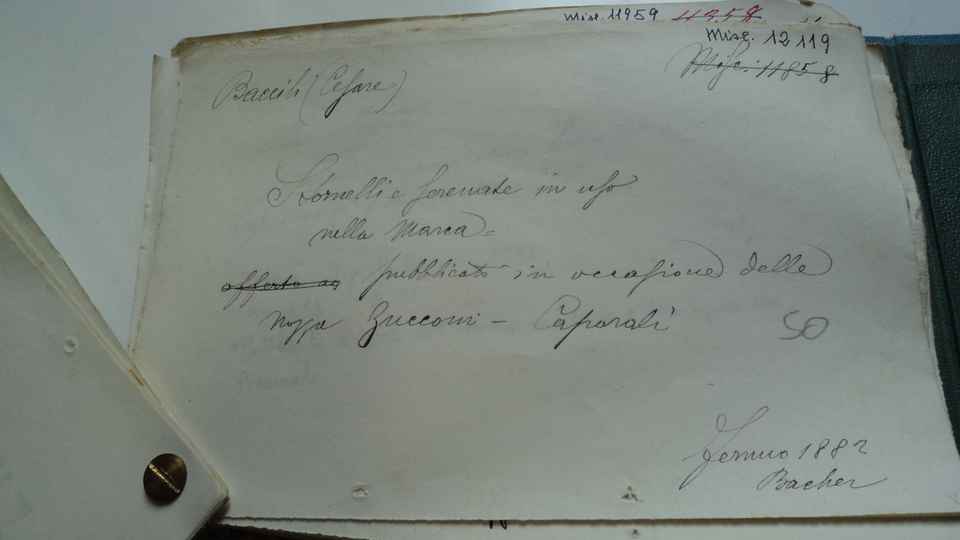 Misc. 11959 11958
Misc. 12119
Misc. 11858
Baccili (Cesare)
Stornelli e serenate in uso
nella Marca=
offerto ag pubblicati in occasione delle
Nozze Zucconi - Caporali
50
Fermo 1882
Bacher